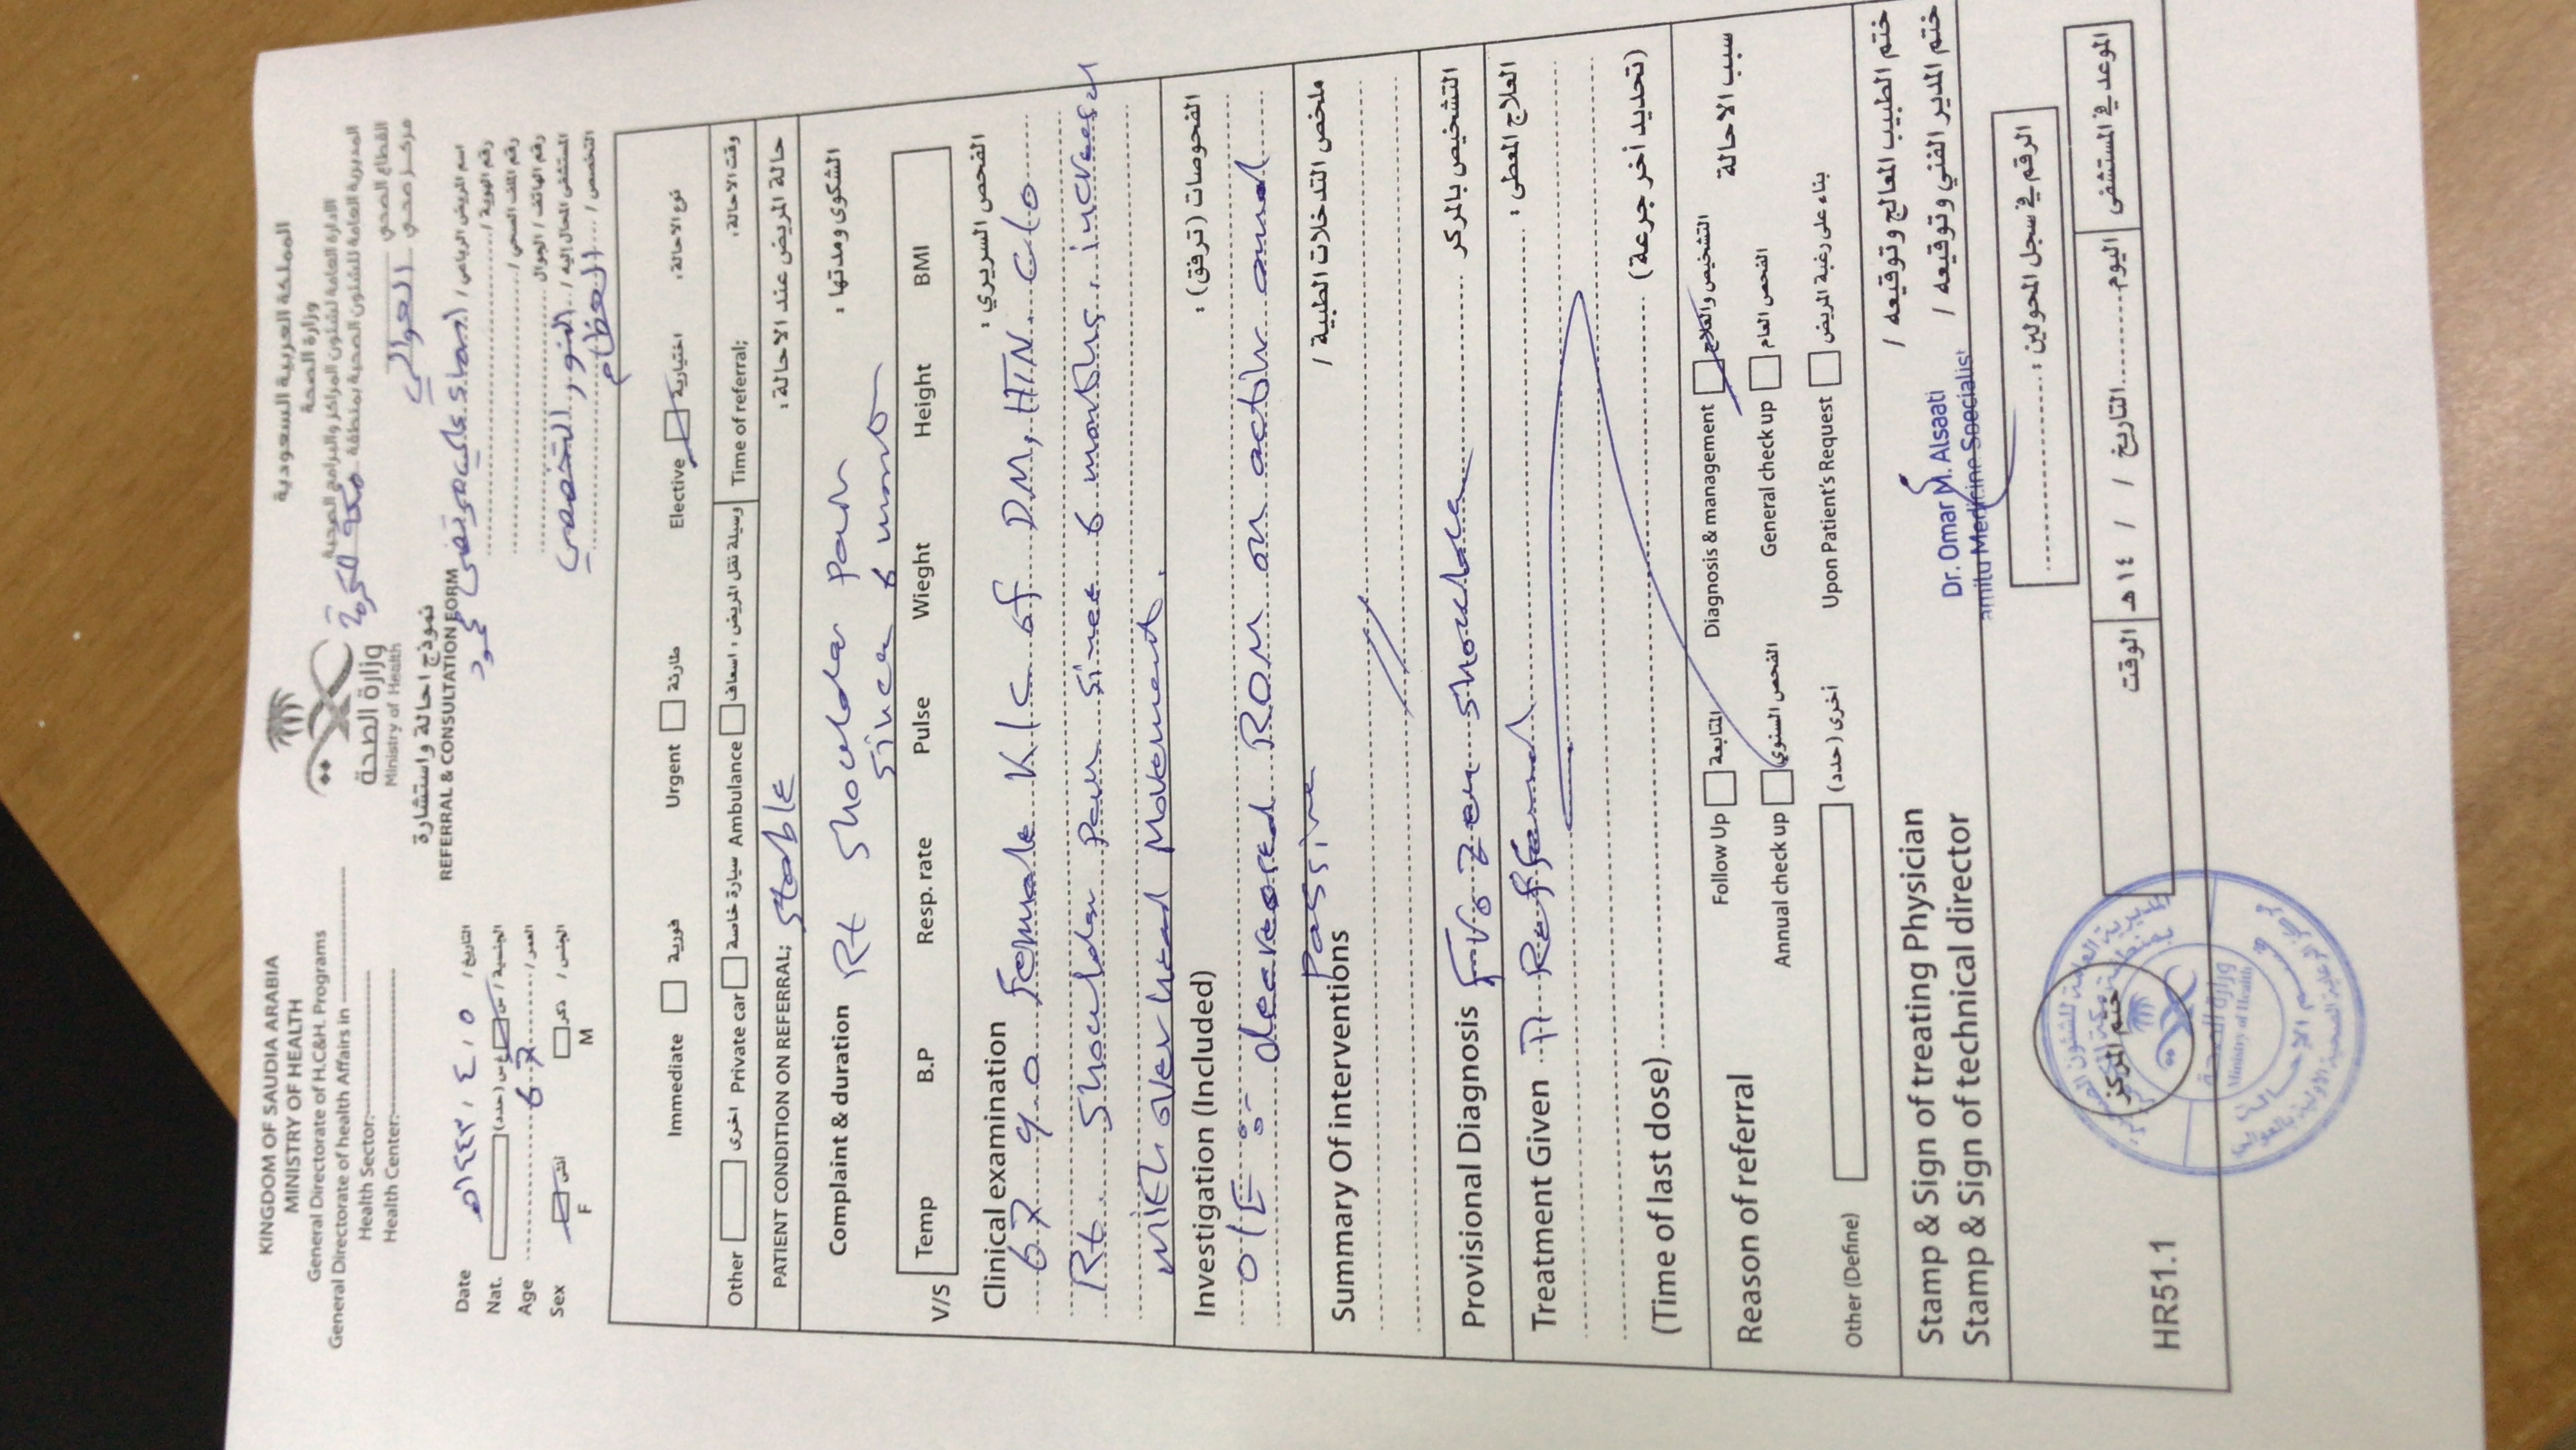 KINGDOM OF SAUDIA ARABIA
MINISTRY OF HEALTH
General Directorate of H.C&H. Programs
General Directorate of health Affairs in
Health Sector:
Health Center:
وزارة الصحة
Ministry of Health
نموذج احالة واستشارة
REFERRAL & CONSULTATION FORM
المملكة العربية السعودية
وزارة الصحة
الادارة العامة لشئون المراكز والبرامج الصحية
المديرية العامة للشئون الصحية بمنطقة مكة المكرمة
القطاع الصحي
مركز صحي العوالي
Date ٥ / ٤ / ١٤٤٣هـ التاريخ /
Nat. الجنسية / س غ س (حدد)
Age 67 العمر /
Sex أنثى ذكر الجنس /
F M
اسم المريض الرباعي / اسماء علي مرتضى محمود
رقم الهوية /
رقم الملف الصحي /
رقم الهاتف / الجوال
المستشفى المحال إليه / النور التخصصي
التخصص / العظام
Immediate فورية Urgent طارئة Elective اختيارية نوع الاحالة :
Other اخرى Private car سيارة خاصة Ambulance وسيلة نقل المريض : اسعاف Time of referral; وقت الاحالة :
PATIENT CONDITION ON REFERRAL; stable حالة المريض عند الاحالة :
Complaint & duration Rt shoulder pain الشكوى ومدتها :
since 6 month
V/S Temp B.P Resp. rate Pulse Wieght Height BMI
Clinical examination الفحص السريري :
67 y.o female K/C of DM, HTN. C/o
Rt. shoulder pain since 6 months, increased
with over head Movement.
Investigation (Included) الفحوصات (ترفق) :
O/E :- decreased ROM on active and
passive
Summary Of interventions ملخص التدخلات الطبية /
Provisional Diagnosis Frozen shoulder التشخيص بالمركز
Treatment Given Refferal العلاج المعطى :
(Time of last dose) (تحديد أخر جرعة)
Reason of referral Follow Up المتابعة Diagnosis & management التشخيص والعلاج سبب الاحالة
Annual check up الفحص السنوي General check up الفحص العام
Other (Define) أخرى (حدد) Upon Patient's Request بناء على رغبة المريض
Stamp & Sign of treating Physician ختم الطبيب المعالج وتوقيعه /
Stamp & Sign of technical director ختم المدير الفني وتوقيعه /
Dr. Omar M. Alsaati
amily Medicine Specialist
الرقم في سجل المحولين :
الموعد في المستشفى اليوم التاريخ / / ١٤ هـ الوقت
HR51.1
ختم المركز
المديرية العامة للشئون الصحية
بمنطقة مكة المكرمة
وزارة الصحة
Ministry of Health
قسم الإحالة
مركز الرعاية الصحية الأولية بالعوالي